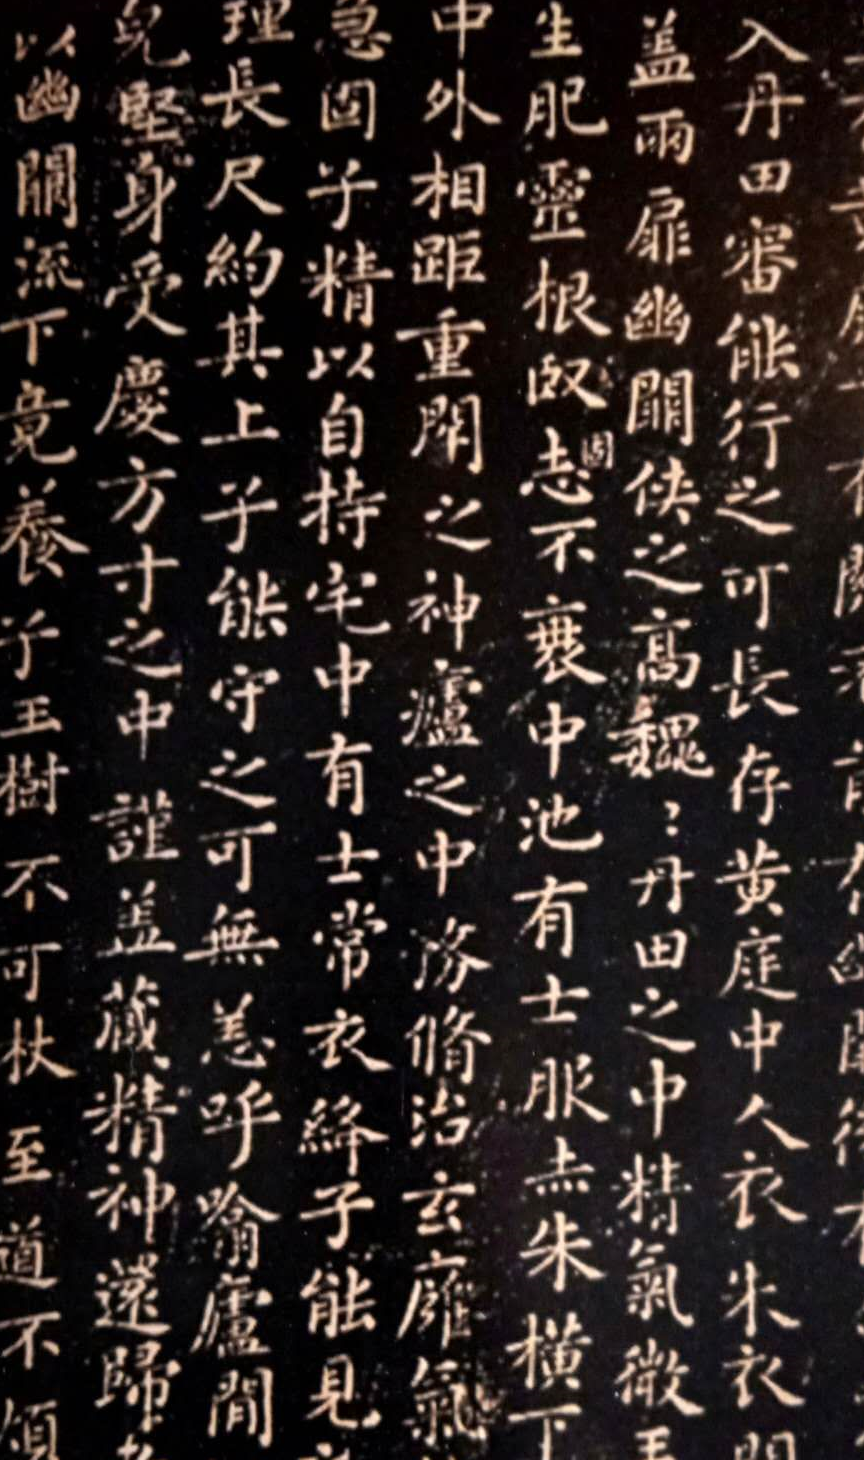 入丹田審能行之可長存黄庭中人衣朱衣
盖兩扉幽關俠之高巍〻丹田之中精氣微
生肥靈根堅志固不衰中池有士服赤朱横下
中外相距重閇之神廬之中務脩治玄膺氣
急固子精以自持宅中有士常衣絳子能見
理長尺約其上子能守之可無恙呼噏廬間
堅身受慶方寸之中謹盖藏精神還歸
以幽關流下竟養子玉樹不可杖至道不煩